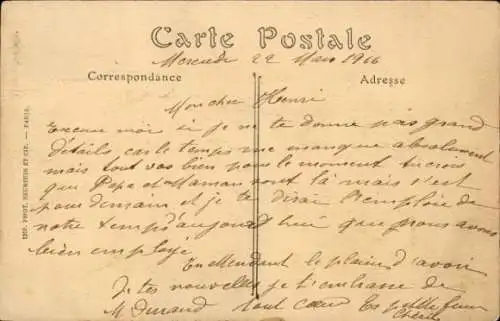 Carte Postale
Mercredi 22 Mars 1916
Correspondance
Adresse
Mon cher Henri
Excuse moi si je ne te donne pas grand
détails car le temps me manque absolument
mais tout vas bien pour le moment tu crois
que Papa et Maman vont là mais s'est
pour demain et je te dirai l'emploie de
notre temps d'aujourd hui que nous avons
bien employé
En attendant le plaisir d'avoir
de tes nouvelles je t'embrasse de
tout cœur
M Durand
Ta petite
IMP. PHOT. NEURDEIN ET CIE. — PARIS.